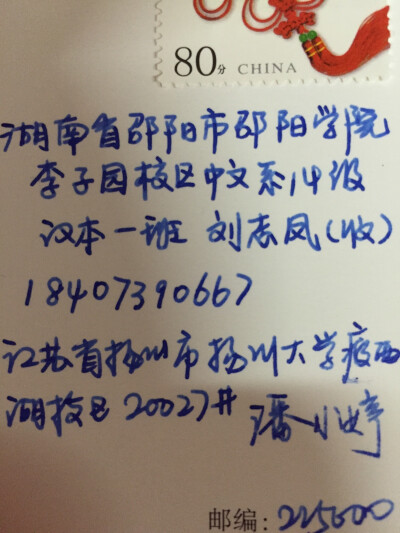 80分 CHINA
湖南省邵阳市邵阳学院
李子园校区中文系14级
汉本一班 刘志凤(收)
18407390667
江苏省扬州市扬州大学瘦西
湖校区 20027# 潘小婷
邮编: 225000